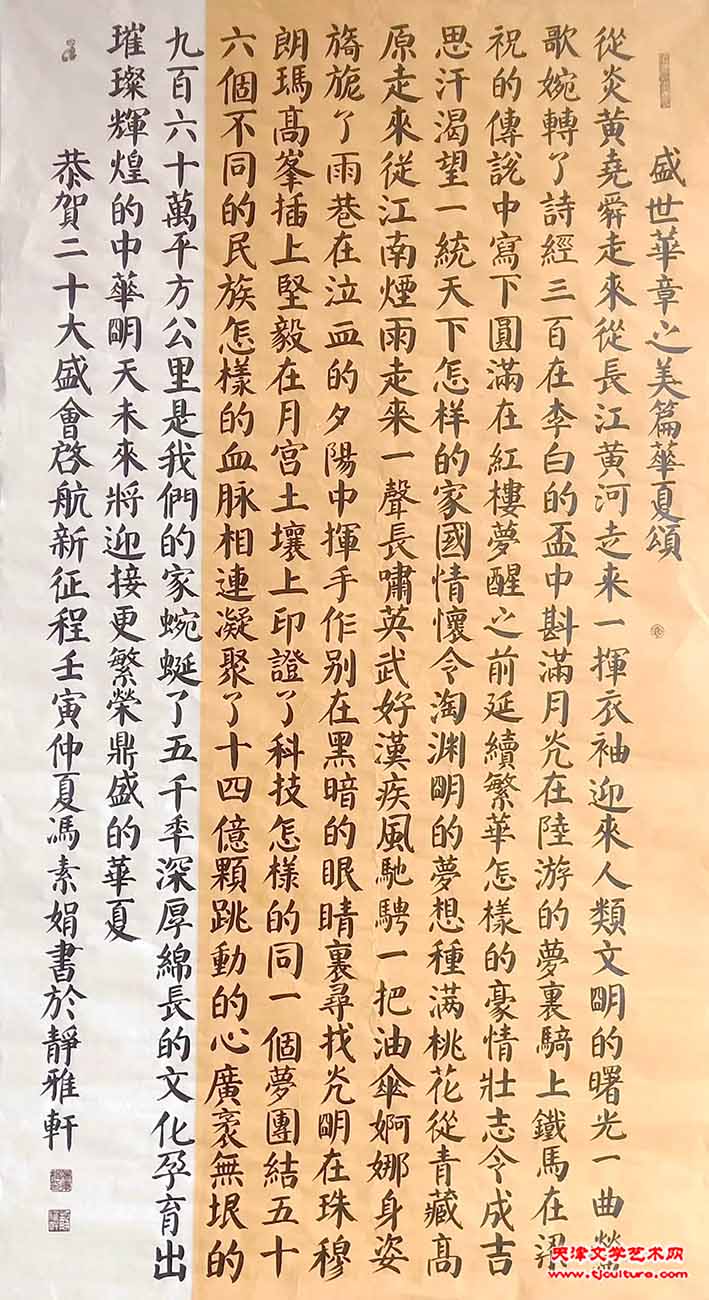 盛世華章之美篇華夏頌
從炎黄堯舜走來從長江黄河走来一揮衣袖迎來人類文明的曙光一曲鶯
歌婉轉了詩經三百在李白的盃中斟滿月光在陸游的夢裏騎上鐵馬在梁
祝的傳説中寫下圓滿在紅樓夢醒之前延續繁華怎樣的豪情壯志令成吉
思汗渴望一統天下怎样的家國情懷令淘渊明的夢想種满桃花從青藏高
原走來從江南煙雨走来一聲長嘯英武好漢疾風馳騁一把油傘婀娜身姿
旖旎了雨巷在泣血的夕陽中揮手作别在黑暗的眼睛裏尋找光明在珠穆
朗瑪高峯插上堅毅在月宫土壤上印證了科技怎樣的同一個夢團結五十
六個不同的民族怎樣的血脉相連凝聚了十四億顆跳動的心廣袤無垠的
九百六十萬平方公里是我們的家蜿蜒了五千年深厚綿長的文化孕育出
璀璨輝煌的中華明天未來將迎接更繁榮鼎盛的華夏
恭賀二十大盛會啓航新征程壬寅仲夏馮素娟書於靜雅軒
天津文学艺术网
www.tjculture.com